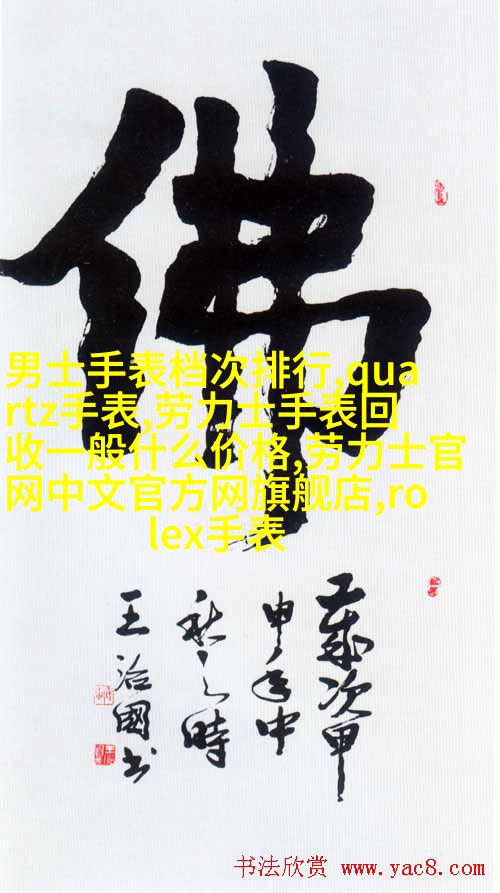 佛
男士手表档次排行,qua
rtz手表,劳力士手表回
收一般什么价格,劳力士官
网中文官方网旗舰店,ro
lex手表
岁次甲
申年中
秋之时
王治国书
书法欣赏 www.yac8.com